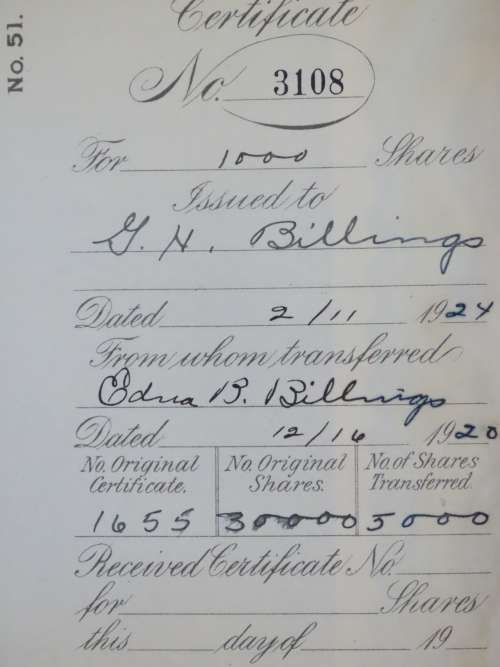 No. 51.
Certificate
No. 3108
For 1000 Shares
Issued to
G. H. Billings
Dated 2/11 1924
From whom transferred
Edna B. Billings
Dated 12/16 1920
No. Original Certificate. No. Original Shares. No. of Shares Transferred.
1655 30000 5000
Received Certificate No.
for Shares
this day of 19